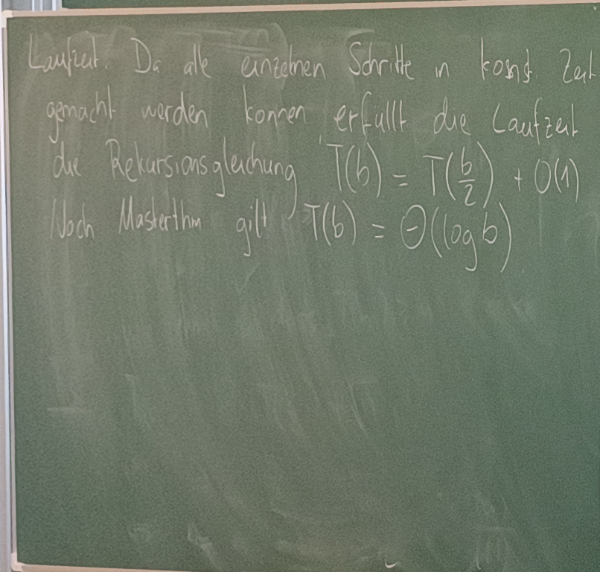 Laufzeit. Da alle einzelnen Schritte in konst. Zeit
gemacht werden können erfüllt die Laufzeit
die Rekursionsgleichung T(b) = T(b/2) + O(1)
Nach Masterthm gilt T(b) = Θ(log b)